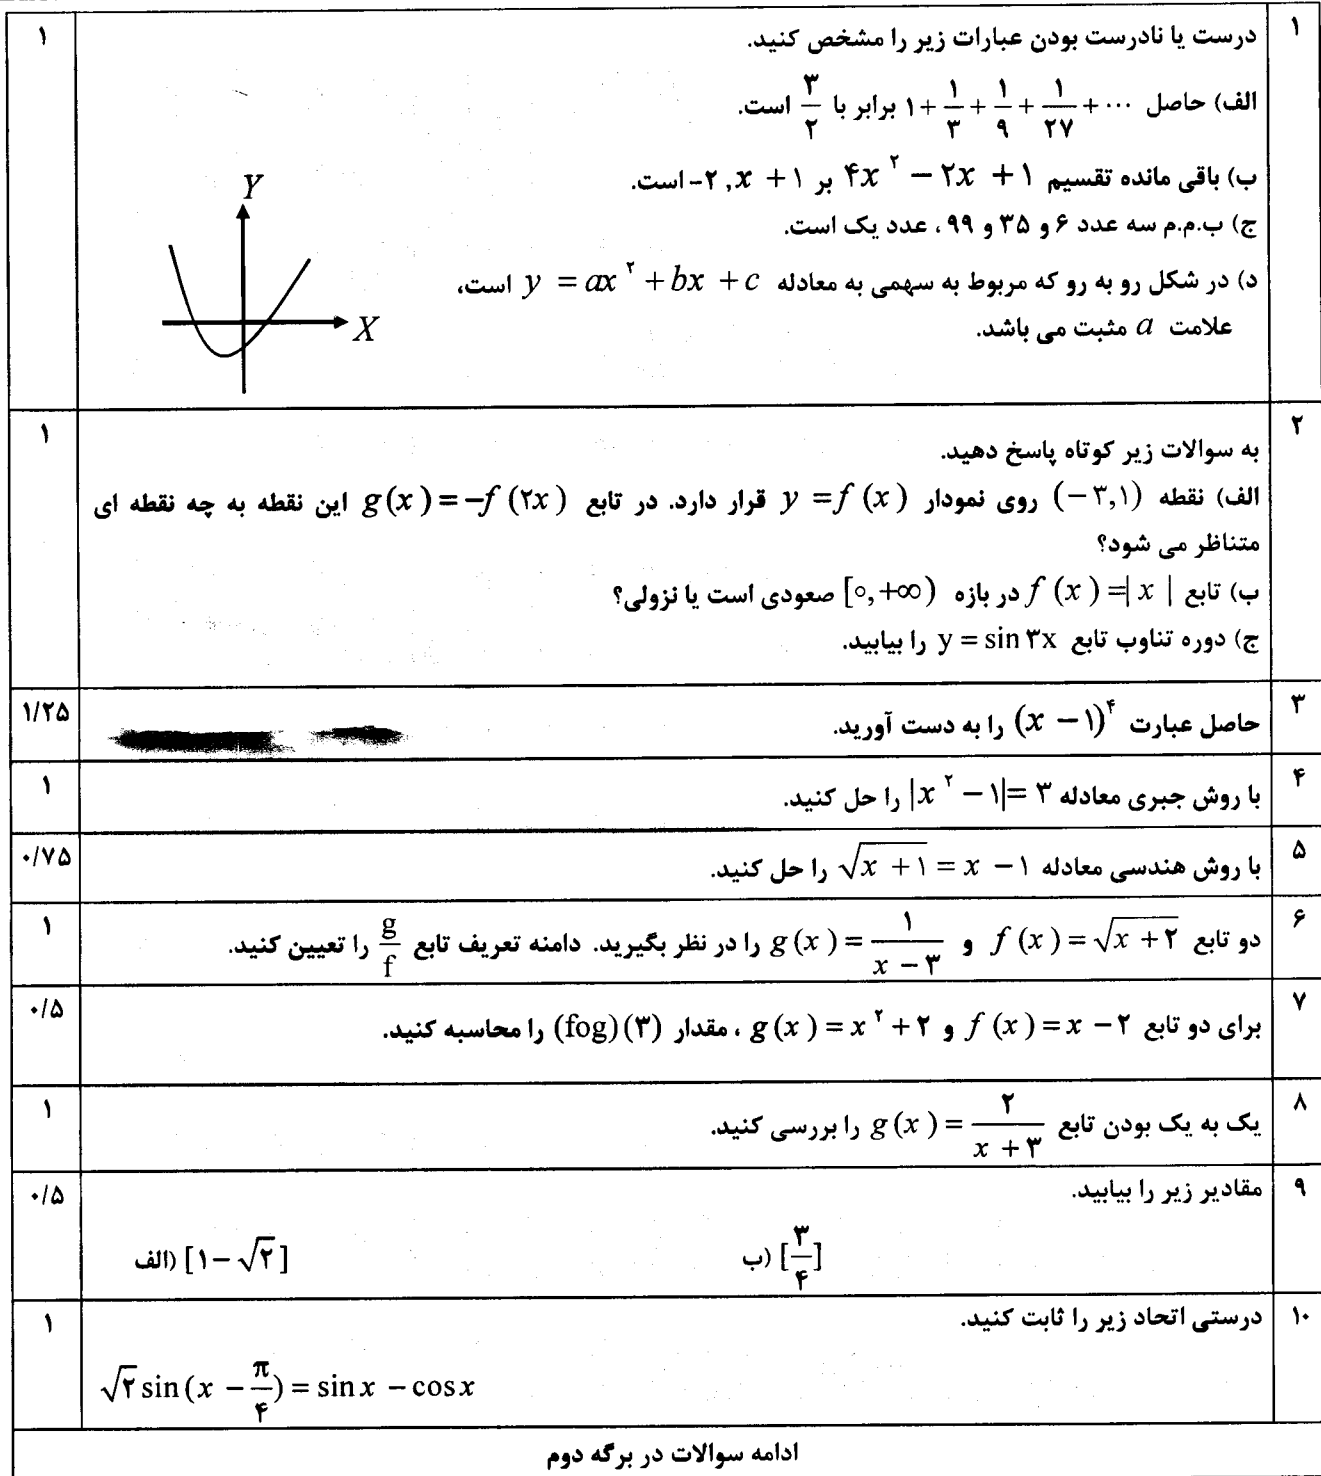 ۱ درست یا نادرست بودن عبارات زیر را مشخص کنید. ۱
الف) حاصل ۱ + ۱/۳ + ۱/۹ + ۱/۲۷ + ⋯ برابر با ۳/۲ است.
ب) باقی مانده تقسیم ۴x² − ۲x + ۱ بر x + ۱ , ۲- است.
ج) ب.م.م سه عدد ۶ و ۳۵ و ۹۹ ، عدد یک است.
د) در شکل رو به رو که مربوط به سهمی به معادله y = ax² + bx + c است،
علامت a مثبت می باشد.
Y
X
۲ ۱
به سوالات زیر کوتاه پاسخ دهید.
الف) نقطه (−۳,۱) روی نمودار y = f(x) قرار دارد. در تابع g(x) = −f(۲x) این نقطه به چه نقطه ای
متناظر می شود؟
ب) تابع f(x) = |x| در بازه [۰,+∞) صعودی است یا نزولی؟
ج) دوره تناوب تابع y = sin ۳x را بیابید.
۳ حاصل عبارت (x − ۱)⁴ را به دست آورید. ۱/۲۵
۴ با روش جبری معادله |x² − ۱| = ۳ را حل کنید. ۱
۵ با روش هندسی معادله √(x + ۱) = x − ۱ را حل کنید. ۰/۷۵
۶ دو تابع f(x) = √(x + ۲) و g(x) = ۱/(x − ۳) را در نظر بگیرید. دامنه تعریف تابع g/f را تعیین کنید. ۱
۷ برای دو تابع f(x) = x − ۲ و g(x) = x² + ۲ ، مقدار (fog)(۳) را محاسبه کنید. ۰/۵
۸ یک به یک بودن تابع g(x) = ۲/(x + ۳) را بررسی کنید. ۱
۹ مقادیر زیر را بیابید. ۰/۵
الف) [۱ − √۲] ب) [۳/۴]
۱۰ درستی اتحاد زیر را ثابت کنید. ۱
√۲ sin(x − π/۴) = sin x − cos x
ادامه سوالات در برگه دوم